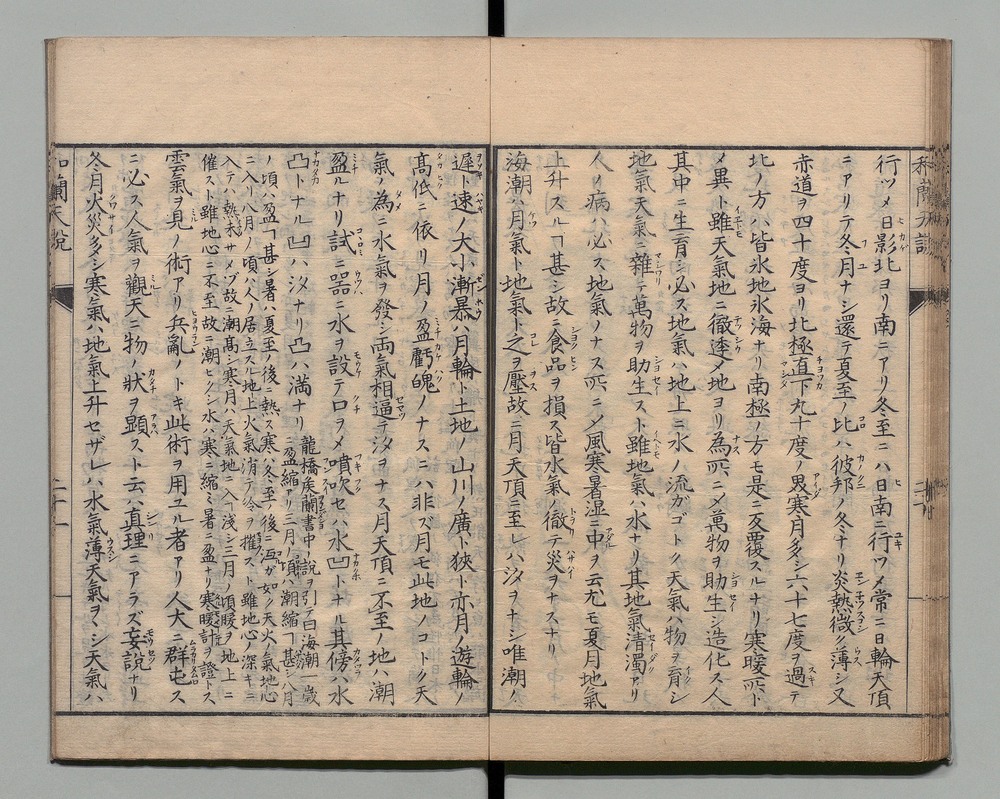 行ツメ日影北ヨリ南ニアリ冬至ニハ日南ニ行ツメ常ニ日輪天頂
ニアリテ冬月ナシ還テ夏至ノ比ハ彼邦ノ冬ナリ炎熱微薄シ又
赤道ヲ四十度ヨリ北極直下九十度ノ間寒月多シ六十七度ヲ過テ
北ノ方ハ皆氷地氷海ナリ南極ノ方モ是ニ反覆スルナリ寒暖所ト
メ異ト雖天氣地ニ徹透メ地ヨリ為所ニメ萬物ヲ助生シ造化ス人
其中ニ生育シ必ス地氣ハ地上ニ水ノ流ガゴトク天氣ハ物ヲ育シ
地氣天氣ニ雜テ萬物ヲ助生スト雖地氣ハ水ナリ其地氣清濁アリ
人ノ病ハ必ス地氣ノナス所ニメ風寒暑湿ニ中ヲ云尤モ夏月地氣
上升スルヿ甚シ故ニ食品ヲ損ス皆水氣ノ徹テ災ヲナスナリ
海潮ハ月氣ト地氣ト之ヲ壓故ニ月天頂ニ至レハ汐ヲナシ唯潮ノ
遲ト速ノ大小漸暴ハ月輪ト土地ノ山川ノ廣ト狹ト亦月ノ遊輪ノ
髙低ニ依リ月ノ盈虧魄ノナスニハ非ズ月モ此地ノコトク天
氣ノ為ニ水氣ヲ發シ両氣相逼テ汐ヲナス月天頂ニ不至ノ地ハ潮
盈ルナリ試ニ器ニ水ヲ設テ口ヲメ噴吹セハ水凹トナル其傍ハ水
凸トナル凹ハ汐ナリ凸ハ満ナリ
龍橋矦蘭書中ノ説ヲ引テ曰海潮一歳
ニ盈縮アリ三月ノ頃ハ潮縮ヿ甚シ八月
ノ頃ハ盈ヿ甚シ暑ハ夏至ノ後ニ熱ス寒ハ冬至ノ後ニ
ニ入リ八月ノ頃ハ人ノ居立スル地上火氣消テ冷ヲ催スト雖地心ノ深キニ
入テハ熱未サメズ故ニ潮髙シ寒月ハ天氣地ニ入ヿ淺シ三月ノ頃暖ヲ地上ニ
催スト雖地心ニ不至故ニ潮ヒクシ水ハ寒ニ縮ミ暑ニ盈ナリ寒暖計ヲ證トス
雲氣ヲ見ノ術アリ兵亂ノトキ此術ヲ用ユル者アリ人大ニ群屯ス
ニ必ス人氣ヲ觀天ニ物ノ狀ヲ顕スト云ハ真理ニアラズ妄説ナリ
冬月火災多シ寒氣ハ地氣上升セザレハ水氣薄天氣ヲヽシ天氣ハ
和蘭天說
二十一